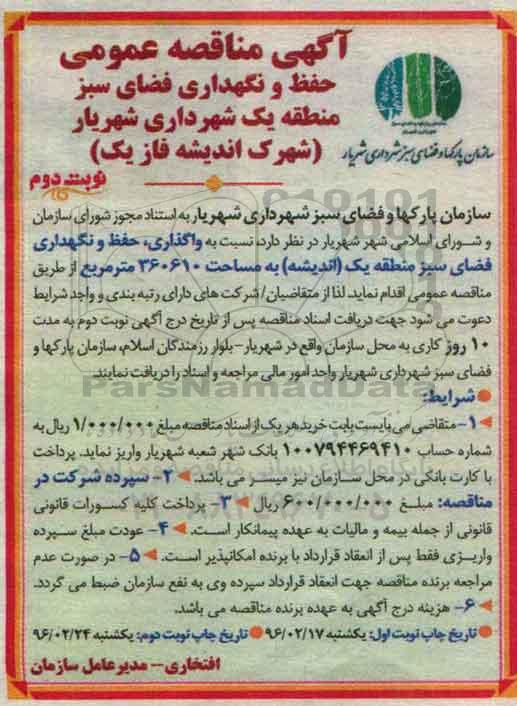 آگهی مناقصه عمومی
حفظ و نگهداری فضای سبز
منطقه یک شهرداری شهریار
(شهرک اندیشه فاز یک)
سازمان پارکها و فضای سبز شهرداری شهریار
نوبت دوم
سازمان پارکها و فضای سبز شهرداری شهریار به استناد مجوز شورای سازمان
و شورای اسلامی شهر شهریار در نظر دارد، نسبت به واگذاری، حفظ و نگهداری
فضای سبز منطقه یک (اندیشه) به مساحت ۳۶۰۶۱۰ مترمربع از طریق
مناقصه عمومی اقدام نماید. لذا از متقاضیان/ شرکت های دارای رتبه بندی و واجد شرایط
دعوت می شود جهت دریافت اسناد مناقصه پس از تاریخ درج آگهی نوبت دوم به مدت
۱۰ روز کاری به محل سازمان واقع در شهریار-بلوار رزمندگان اسلام، سازمان پارکها و
فضای سبز شهرداری شهریار واحد امور مالی مراجعه و اسناد را دریافت نمایند.
ParsNamadData
شرایط:
۱- متقاضی می بایست بابت خرید هر یک از اسناد مناقصه مبلغ ۱/۰۰۰/۰۰۰ ریال به
شماره حساب ۱۰۰۷۹۴۴۶۹۴۱۰ بانک شهر شعبه شهریار واریز نماید. پرداخت
با کارت بانکی در محل سازمان نیز میسر می باشد. ۲- سپرده شرکت در
مناقصه: مبلغ ۶۰۰/۰۰۰/۰۰۰ ریال ۳- پرداخت کلیه کسورات قانونی
قانونی از جمله بیمه و مالیات به عهده پیمانکار است. ۴- عودت مبلغ سپرده
واریزی فقط پس از انعقاد قرارداد با برنده امکانپذیر است. ۵- در صورت عدم
مراجعه برنده مناقصه جهت انعقاد قرارداد سپرده وی به نفع سازمان ضبط می گردد.
۶- هزینه درج آگهی به عهده برنده مناقصه می باشد.
تاریخ چاپ نوبت اول: یکشنبه ۹۶/۰۲/۱۷ تاریخ چاپ نوبت دوم: یکشنبه ۹۶/۰۲/۲۴
افتخاری- مدیرعامل سازمان